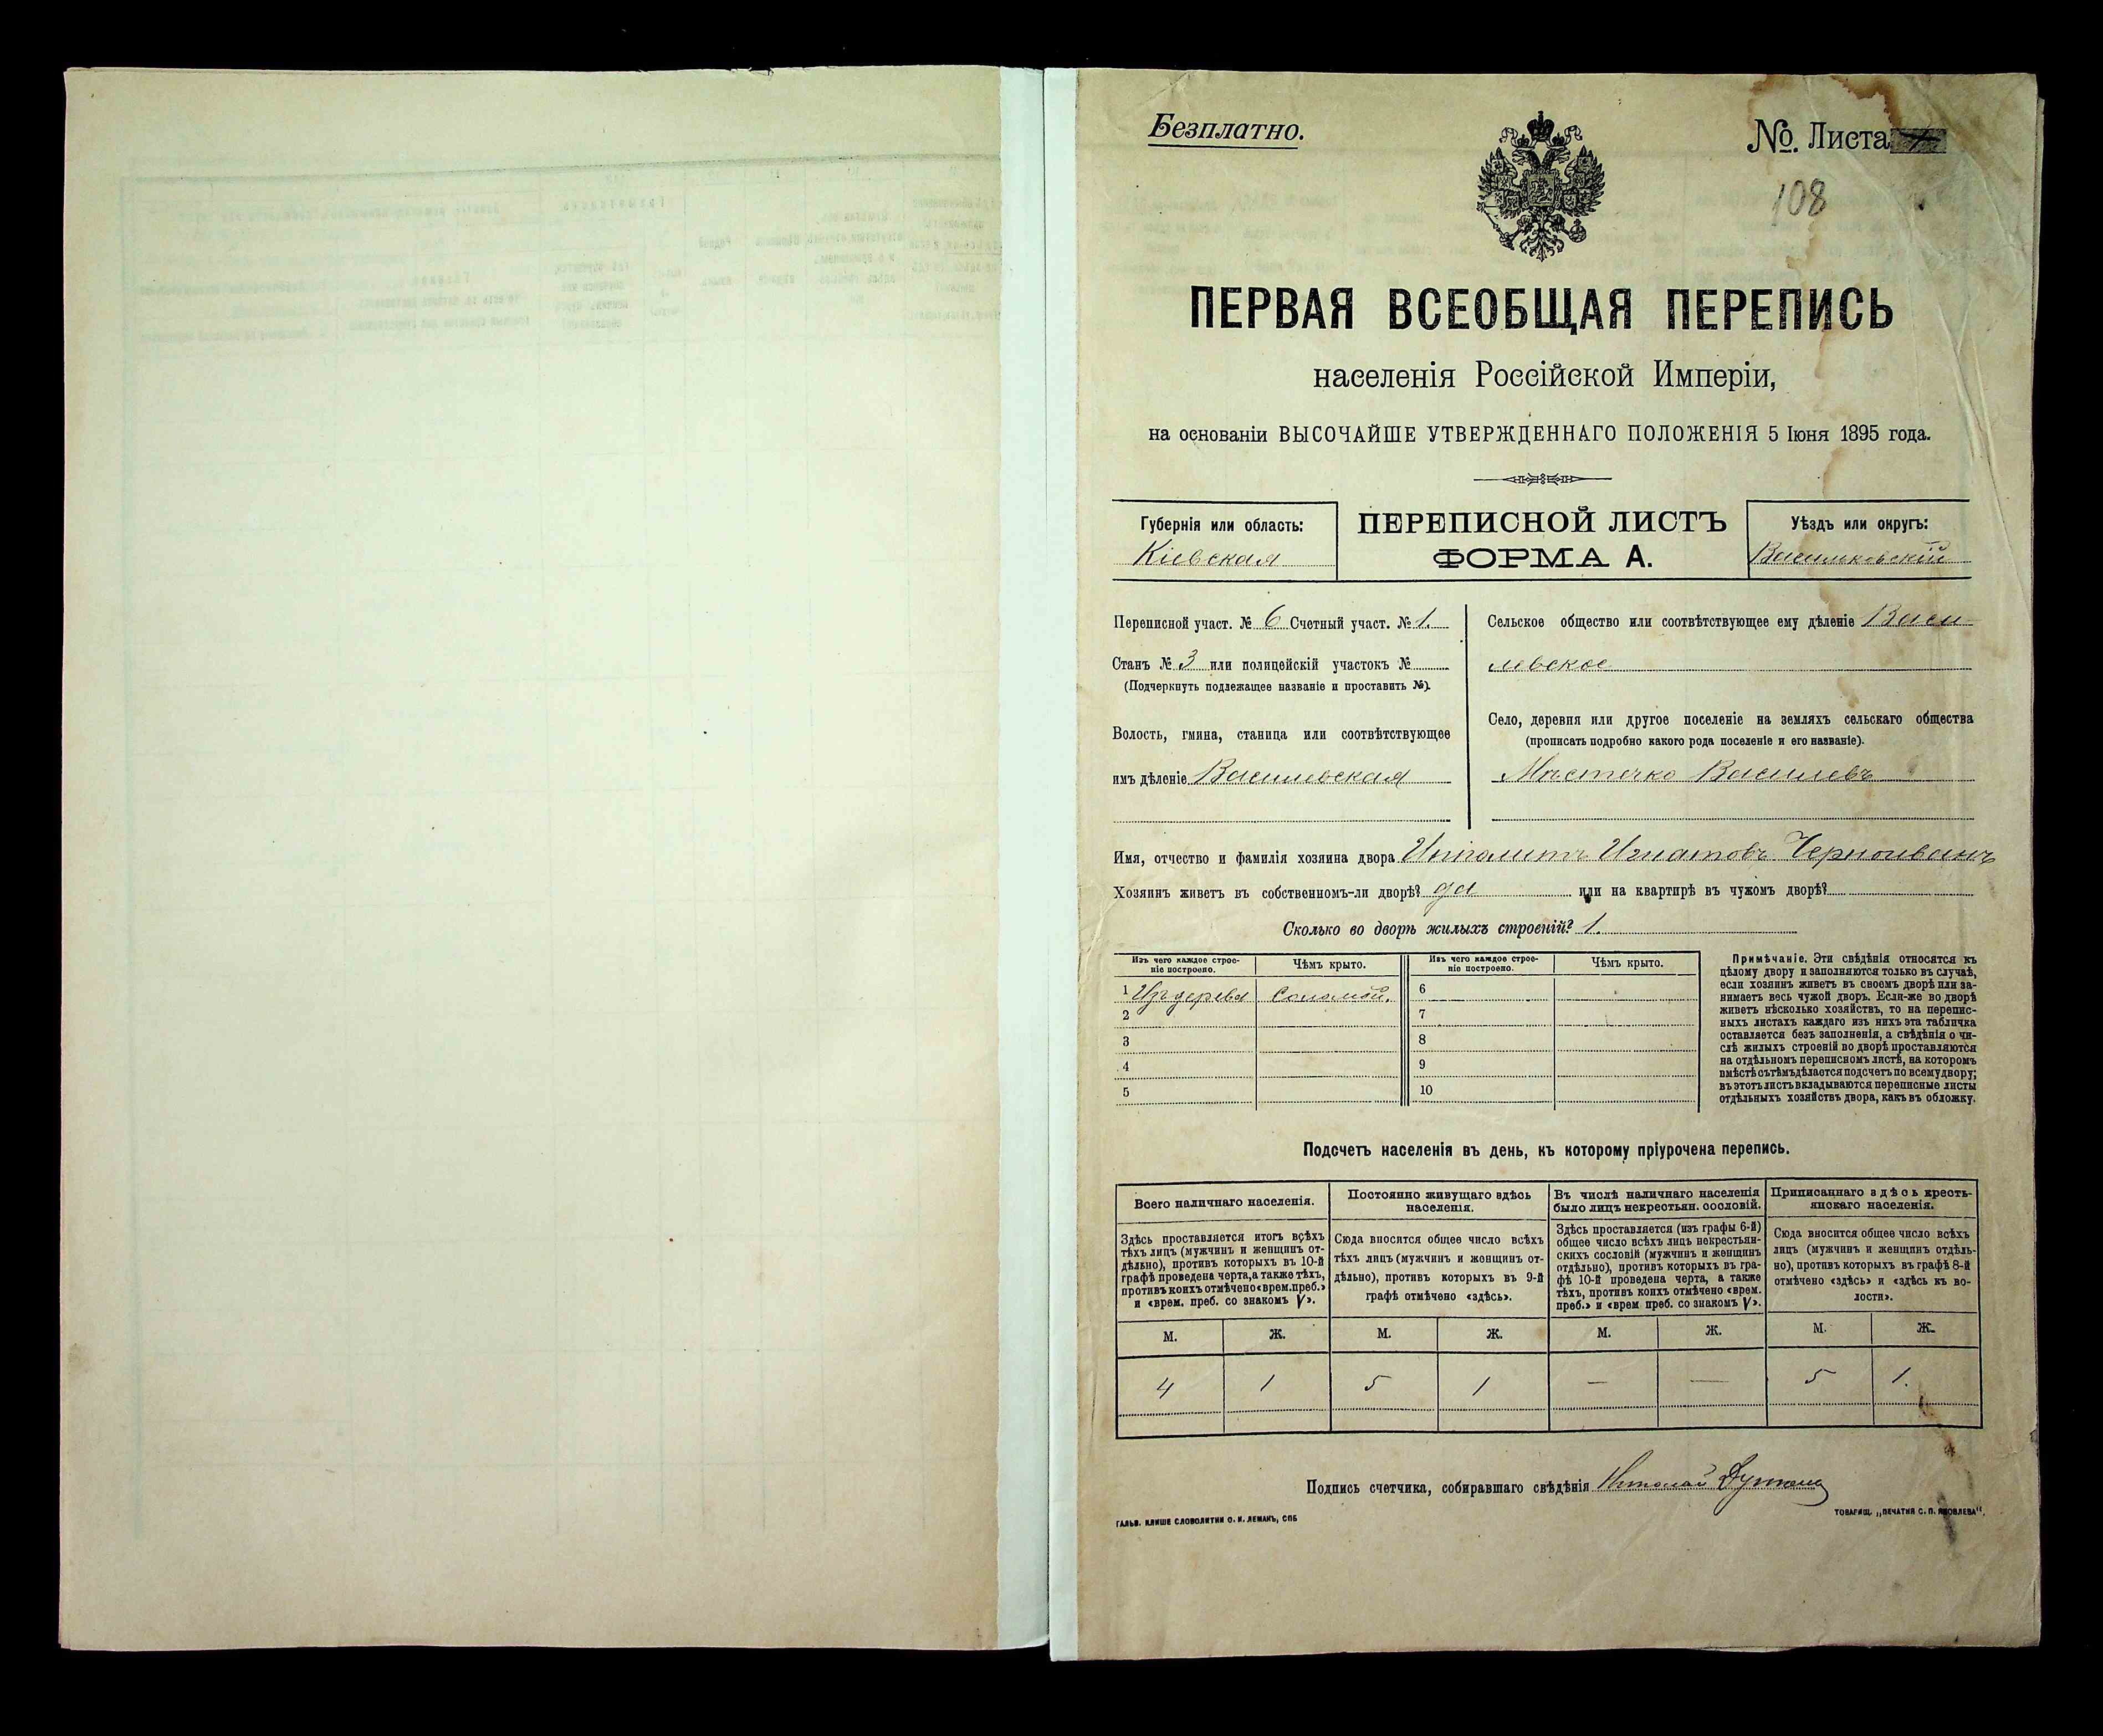 Безплатно.
№. Листа
108
ПЕРВАЯ ВСЕОБЩАЯ ПЕРЕПИСЬ
населенія Россійской Имперіи,
на основаніи ВЫСОЧАЙШЕ УТВЕРЖДЕННАГО ПОЛОЖЕНІЯ 5 Іюня 1895 года.
Губернія или область:
Кіевская
ПЕРЕПИСНОЙ ЛИСТЪ
ФОРМА А.
Уѣздъ или округъ:
Васильковскій
Переписной участ. № 6 Счетный участ. № 1.
Станъ № 3 или полицейскій участокъ №
(Подчеркнуть подлежащее названіе и проставить №).
Волость, гмина, станица или соотвѣтствующее
имъ дѣленіе Василевская
Сельское общество или соотвѣтствующее ему дѣленіе Васи-
левское
Село, деревня или другое поселеніе на земляхъ сельскаго общества
(прописать подробно какого рода поселеніе и его названіе).
Мѣстечко Василевъ
Имя, отчество и фамилія хозяина двора Ипполитъ Игнатовъ Черноиванъ
Хозяинъ живетъ въ собственномъ-ли дворѣ? да или на квартирѣ въ чужомъ дворѣ?
Сколько во дворѣ жилыхъ строеній? 1.
Изъ чего каждое строе-
ніе построено.
Чѣмъ крыто.
Изъ чего каждое строе-
ніе построено.
Чѣмъ крыто.
1 Изъ дерева Соломой. 6
2 7
3 8
4 9
5 10
Примѣчаніе. Эти свѣдѣнія относятся къ
цѣлому двору и заполняются только въ случаѣ,
если хозяинъ живетъ въ своемъ дворѣ или за-
нимаетъ весь чужой дворъ. Если-же во дворѣ
живетъ нѣсколько хозяйствъ, то на перепис-
ныхъ листахъ каждаго изъ нихъ эта табличка
оставляется безъ заполненія, а свѣдѣнія о чи-
слѣ жилыхъ строеній во дворѣ проставляются
на отдѣльномъ переписномъ листѣ, на которомъ
вмѣстѣ съ тѣмъ дѣлается подсчетъ по всему двору;
въ этотъ листъ вкладываются переписные листы
отдѣльныхъ хозяйствъ двора, какъ въ обложку.
Подсчетъ населенія въ день, къ которому пріурочена перепись.
Всего наличнаго населенія.
Здѣсь проставляется итогъ всѣхъ
тѣхъ лицъ (мужчинъ и женщинъ от-
дѣльно), противъ которыхъ въ 10-й
графѣ проведена черта, а также тѣхъ,
противъ коихъ отмѣчено «врем. преб.»
и «врем. преб. со знакомъ V».
Постоянно живущаго здѣсь
населенія.
Сюда вносится общее число всѣхъ
тѣхъ лицъ (мужчинъ и женщинъ от-
дѣльно), противъ которыхъ въ 9-й
графѣ отмѣчено «здѣсь».
Въ числѣ наличнаго населенія
было лицъ некрестьян. сословій.
Здѣсь проставляется (изъ графы 6-й)
общее число всѣхъ лицъ некрестьян-
скихъ сословій (мужчинъ и женщинъ
отдѣльно), противъ которыхъ въ гра-
фѣ 10-й проведена черта, а также
тѣхъ, противъ коихъ отмѣчено «врем.
преб.» и «врем преб. со знакомъ V».
Приписаннаго здѣсь кресть-
янскаго населенія.
Сюда вносится общее число всѣхъ
лицъ (мужчинъ и женщинъ отдѣль-
но), противъ которыхъ въ графѣ 8-й
отмѣчено «здѣсь» и «здѣсь къ во-
лости».
М. Ж. М. Ж. М. Ж. М. Ж.
4 1 5 1 — — 5 1.
Подпись счетчика, собиравшаго свѣдѣнія Николай
ГАЛЬВ. КЛИШЕ СЛОВОЛИТНИ О. И. ЛЕМАНЪ, СПБ
ТОВАРИЩ. „ПЕЧАТНЯ С. П. ЯКОВЛЕВА“.